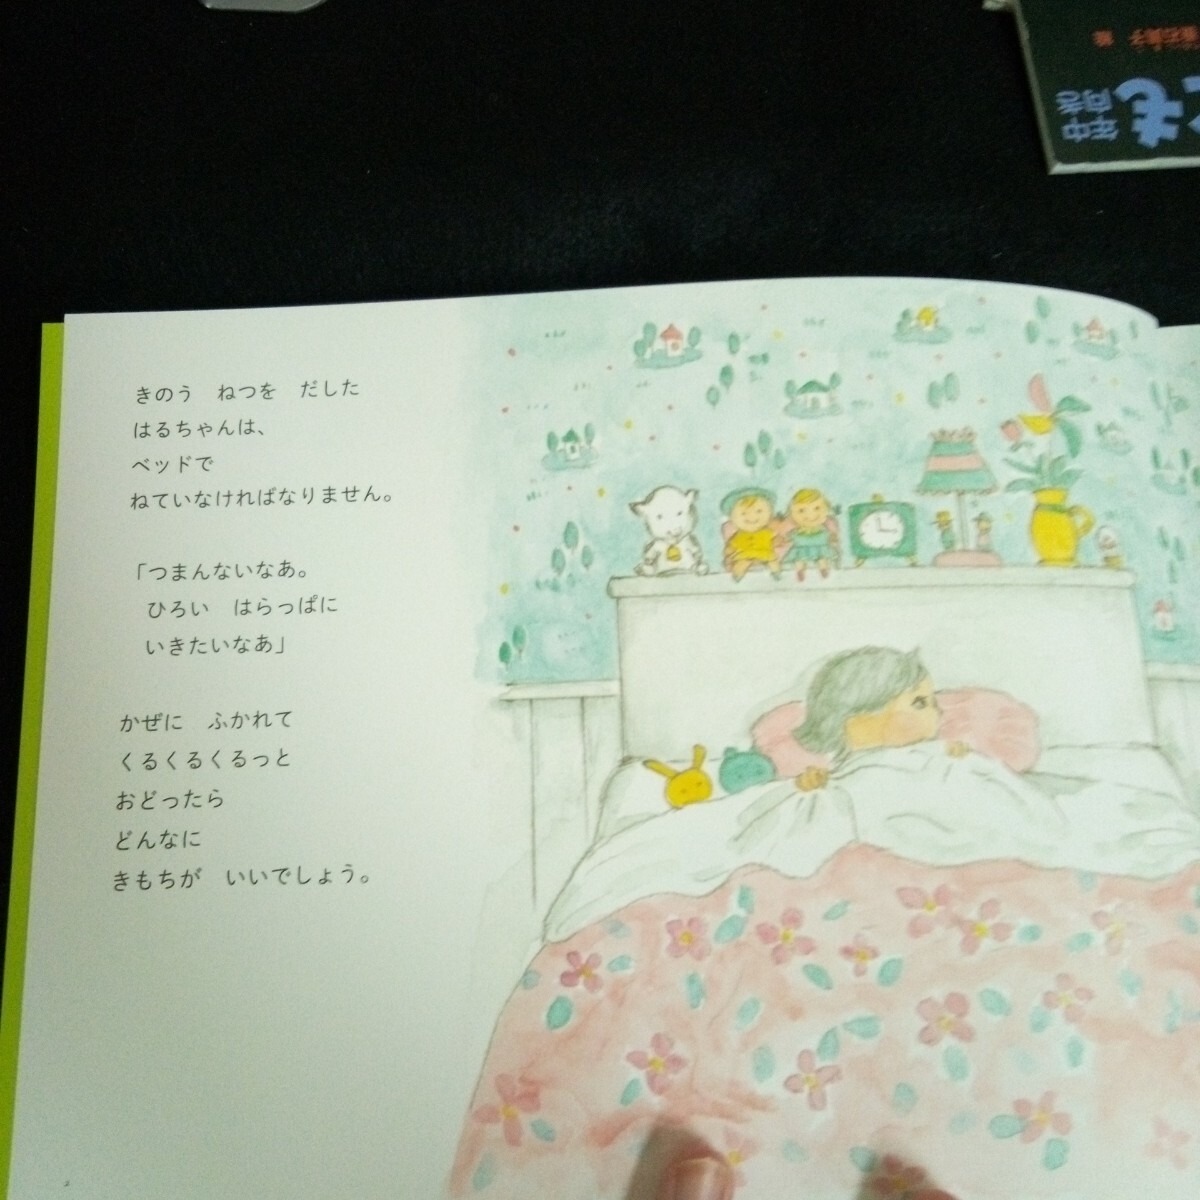 きのう　ねつを　だした
はるちゃんは、
ベッドで
ねていなければなりません。
「つまんないなあ。
ひろい　はらっぱに
いきたいなあ」
かぜに　ふかれて
くるくるくるっと
おどったら
どんなに
きもちが　いいでしょう。